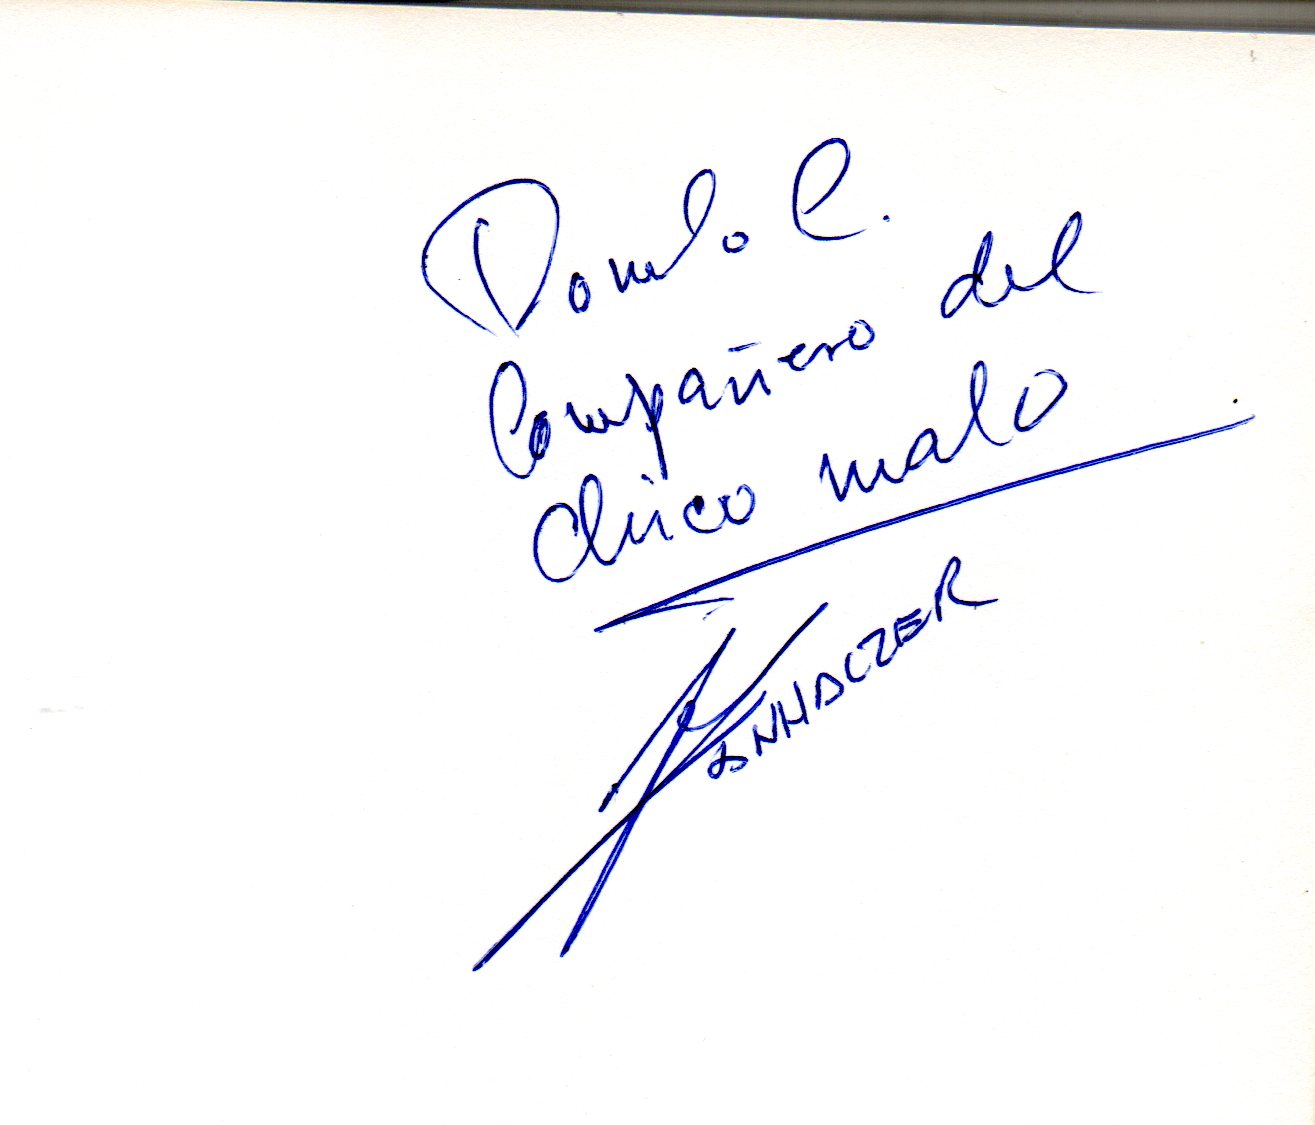 Danilo C.
Compañero del
chico malo
KANHACZER